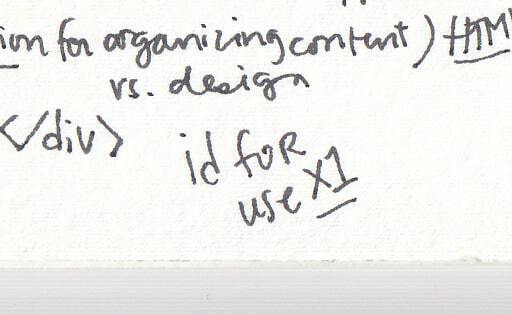 ion for organizing content) HTM
vs. design
</div>
id foR
use X1